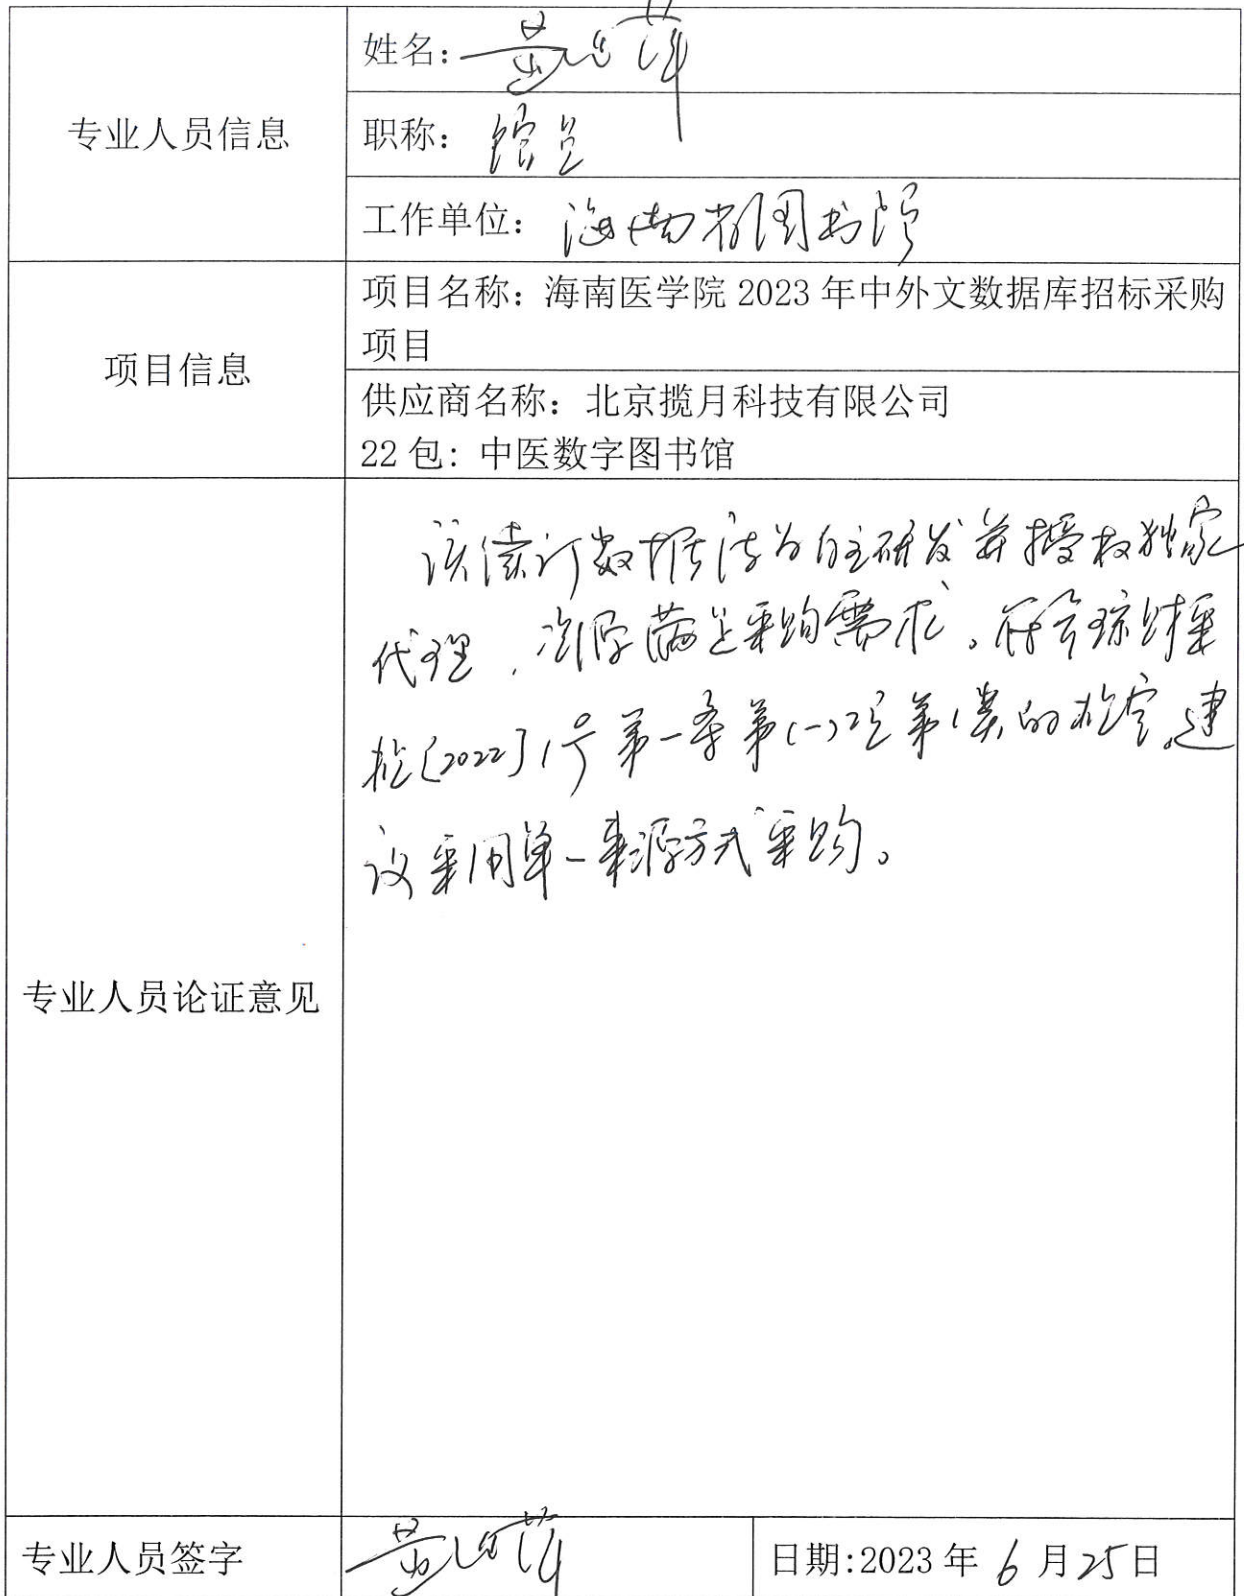 专业人员信息
姓名：黄
职称：馆员
工作单位：海南省图书馆
项目信息
项目名称：海南医学院 2023 年中外文数据库招标采购
项目
供应商名称：北京揽月科技有限公司
22 包：中医数字图书馆
专业人员论证意见
该续订数据库为自主研发并授权独家
代理，资源满足采购需求。符合琼财采
规〔2022〕1号第一条第(一)项第1类的规定。建
议采用单一来源方式采购。
专业人员签字
黄
日期:2023 年 6 月 25 日